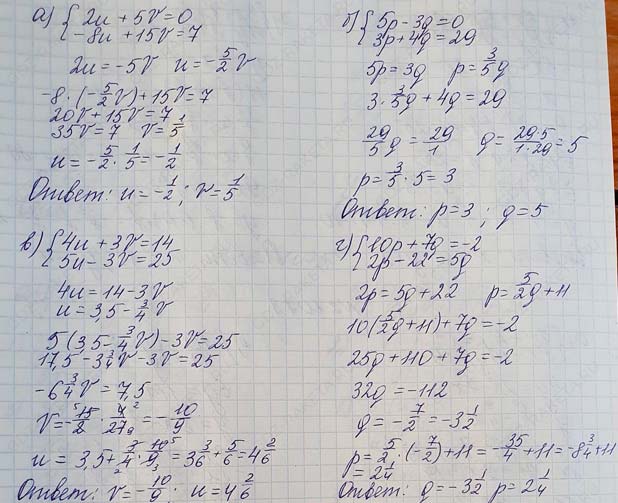 а) { 2u + 5v = 0
-8u + 15v = 7
2u = -5v   u = -5/2 v
-8 · (-5/2 v) + 15v = 7
20v + 15v = 7
35v = 7   v = 1/5
u = -5/2 · 1/5 = -1/2
Ответ: u = -1/2 ; v = 1/5
б) { 5p - 3q = 0
3p + 4q = 29
5p = 3q   p = 3/5 q
3 · 3/5 q + 4q = 29
29/5 q = 29/1   q = 29·5/1·29 = 5
p = 3/5 · 5 = 3
Ответ: p = 3 ; q = 5
в) { 4u + 3v = 14
5u - 3v = 25
4u = 14 - 3v
u = 3,5 - 3/4 v
5 (3,5 - 3/4 v) - 3v = 25
17,5 - 3 3/4 v - 3v = 25
-6 3/4 v = 7,5
v = -15/2 · 4/27 = -10/9
u = 3,5 + 3/4 · 10/9 = 3 3/6 + 5/6 = 4 2/6
Ответ: v = -10/9 ; u = 4 2/6
г) { 10p + 7q = -2
2p - 22 = 5q
2p = 5q + 22   p = 5/2 q + 11
10 (5/2 q + 11) + 7q = -2
25q + 110 + 7q = -2
32q = -112
q = -7/2 = -3 1/2
p = 5/2 · (-7/2) + 11 = -35/4 + 11 = -8 3/4 + 11
= 2 1/4
Ответ: q = -3 1/2 p = 2 1/4